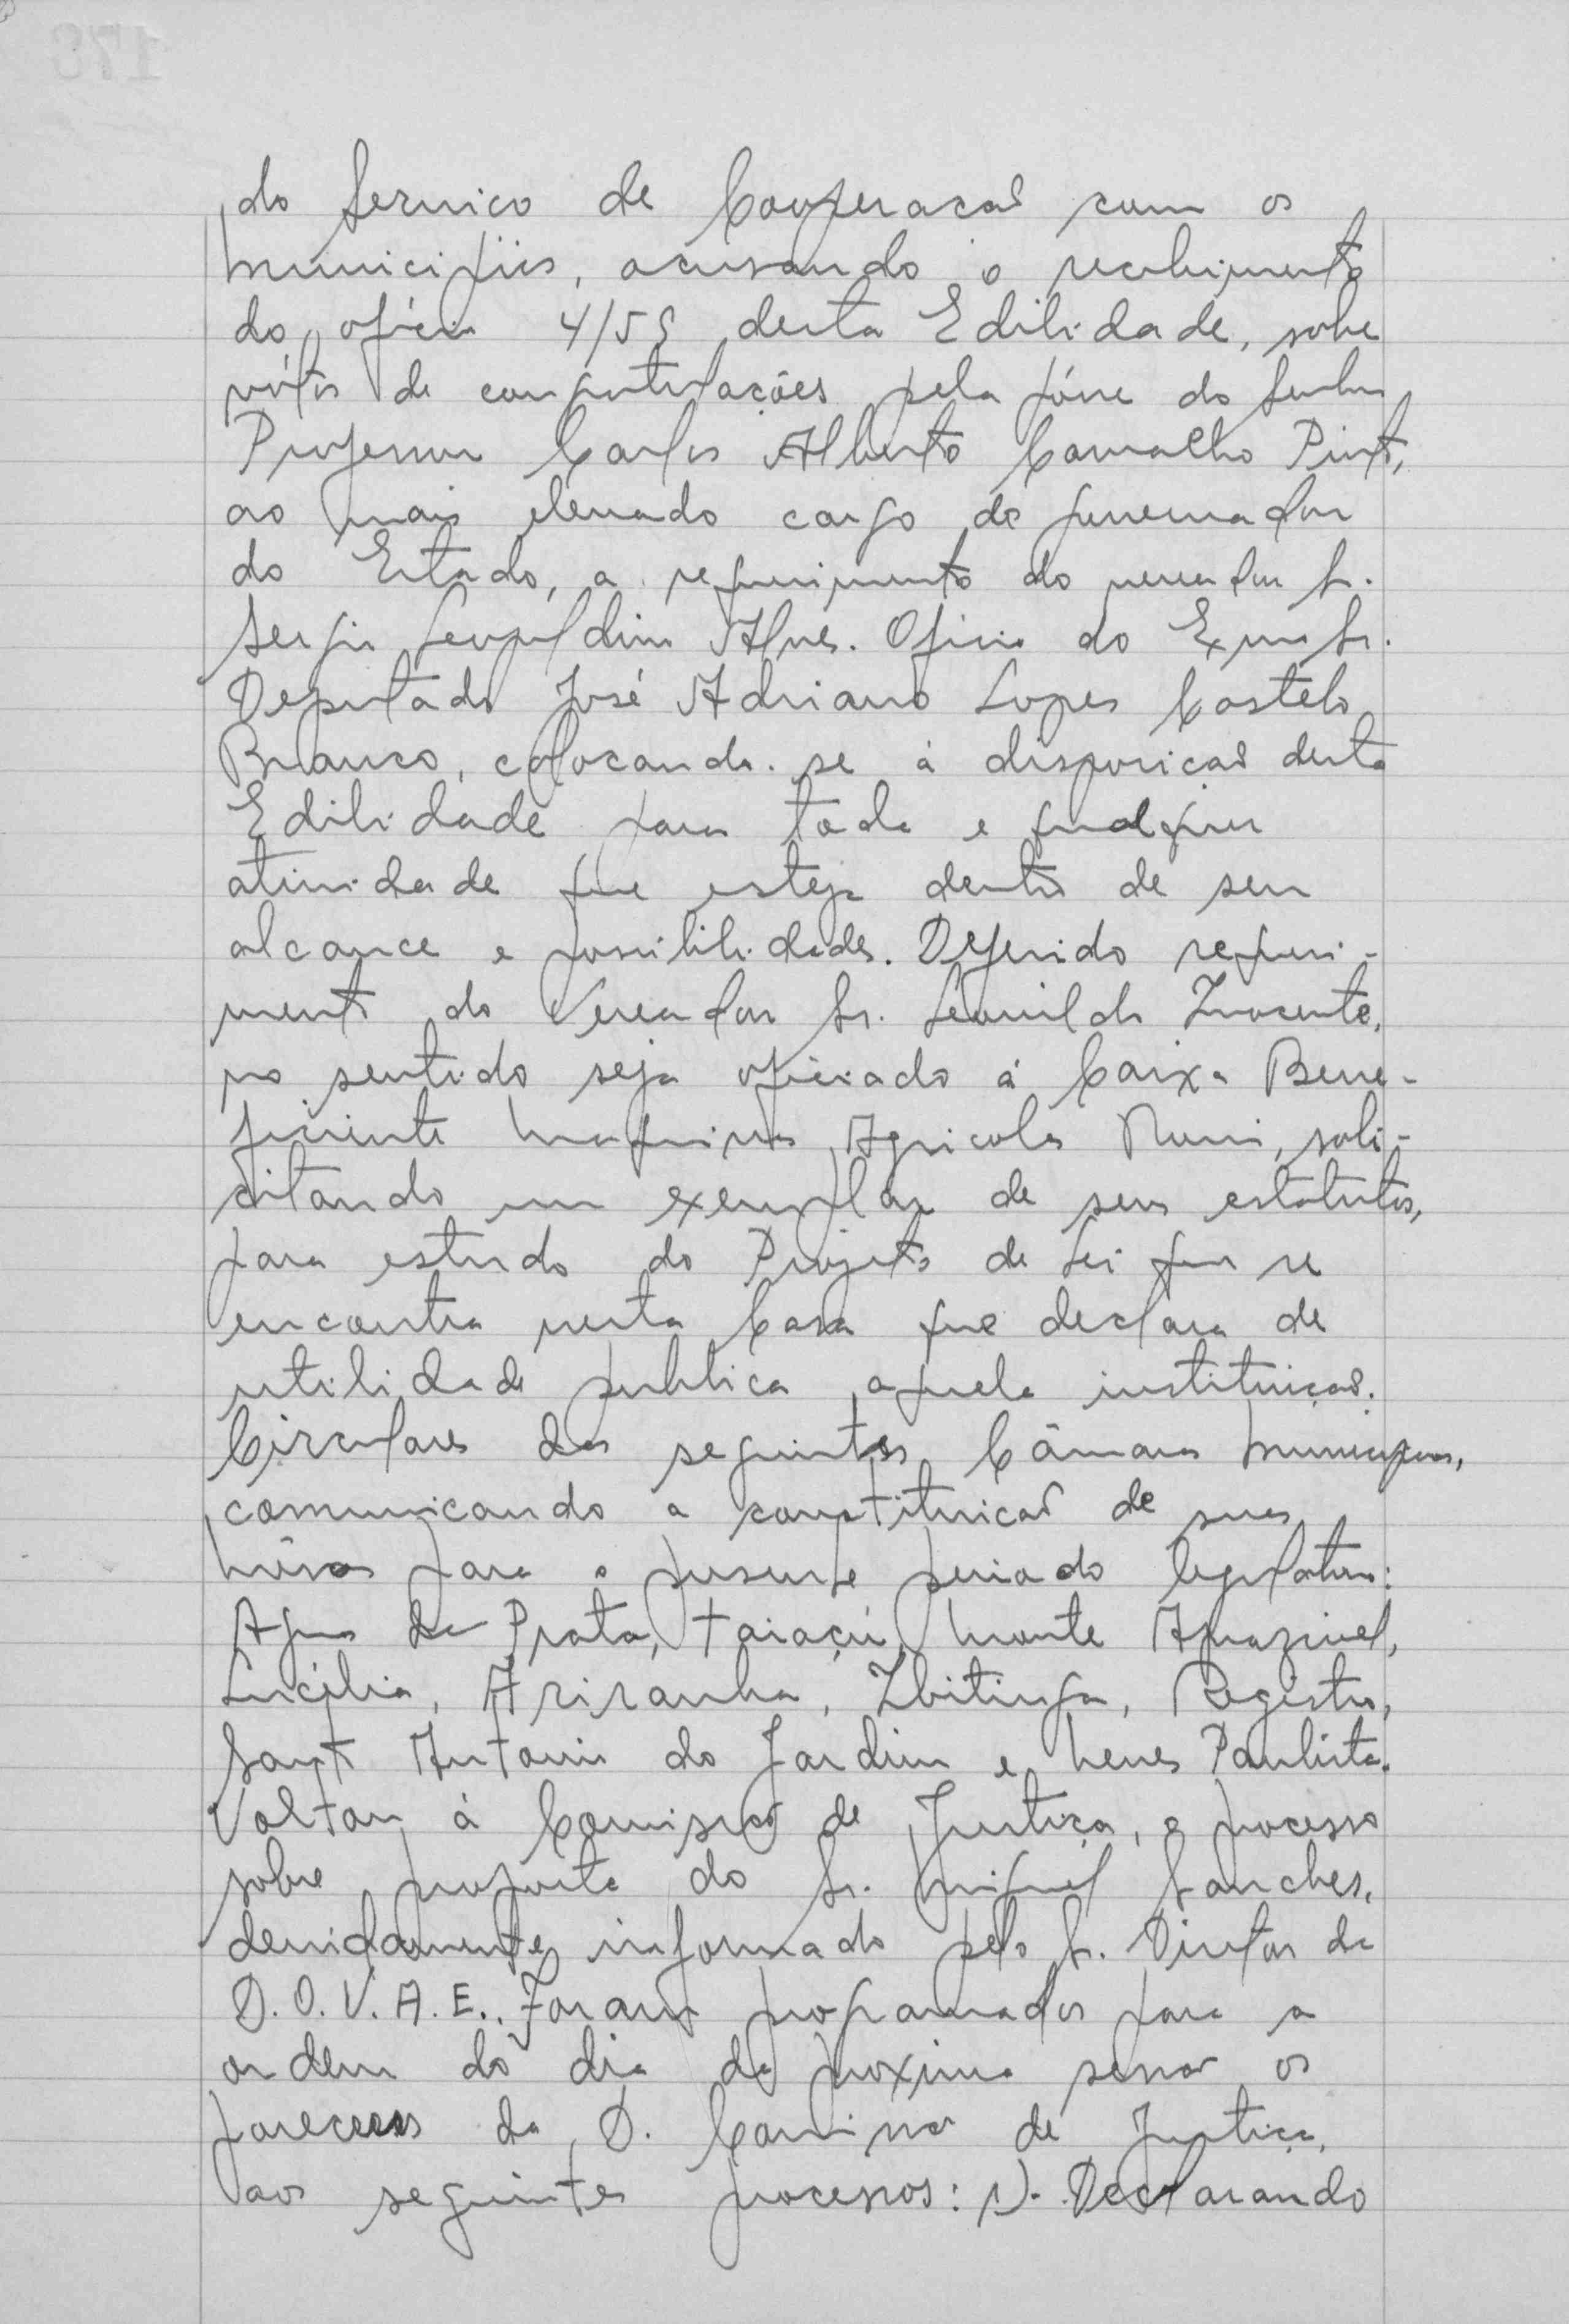 do Serviço de Cooperação com os
Municipios, acusando o recebimento
do oficio 4/59 desta Edilidade, sobre
votos de congratulações pela pósse do Senhor
Professor Carlos Alberto Carvalho Pinto,
ao mais elevado cargo de governador
do Estado, a requerimento do vereador Sr.
Sergio Leopoldino Alves. Oficio do Exmo Sr.
Deputado José Adriano Lopes Castelo
Branco, colocando-se á disposição desta
Edilidade para toda e qualquer
atividade que esteja dentro de seu
alcance e possibilidades. Deferido requeri-
mento do Vereador Sr. Leonildo Inocente,
no sentido seja oficiado á Caixa Bene-
ficiente Maquinas Agricolas Nunni, soli-
citando um exemplar de seus estatutos,
para estudo do Projeto de Lei que se
encontra nesta Casa que declara de
utilidade publica aquela instituição.
Circulares das seguintes Câmaras Municipais,
comunicando a constituição de suas
Mêsas para o presente periodo legislativo:
Aguas da Prata, Taiaçú, Monte Aprazivel,
Lucélia, Ariranha, Ibitinga, Registro,
Santo Antonio do Jardim e Neves Paulista.
Voltou á Comissão de Justiça, o processo
sobre proposta do Sr. Miguel Sanches,
devidamente informado pelo Sr. Diretor da
D.O.V.A.E.. Foram programados para a
ordem do dia da proxima sessão os
pareceres da D. Comissão de Justiça,
aos seguintes processos: 1)- Declarando